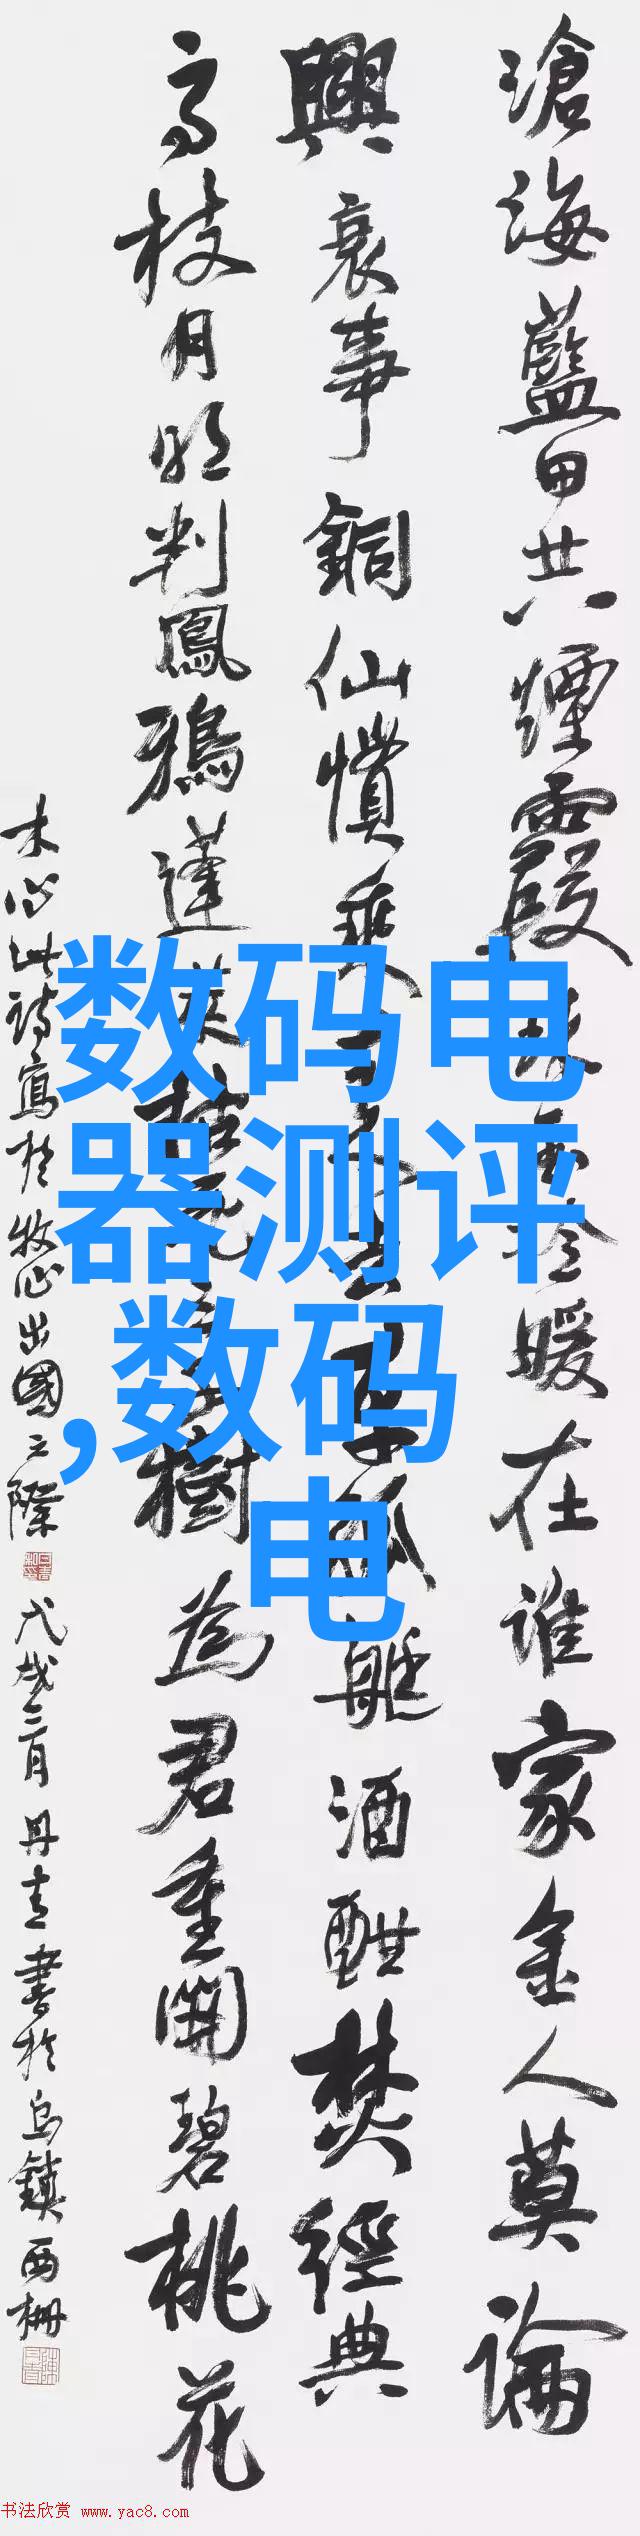 滄海藍田共煙霞
暖在谁家金人莫論
興衰事銅仙慣乘
艇酒酣焚經典
高枝月明判鳳鴉蓬萊枯死
樹為君重開碧桃花
木心此詩寫於牧心出國之際
戊戌三月丹青書於烏鎮西柵
数码电
器测评
,数码
电
书法欣赏 www.yac8.com